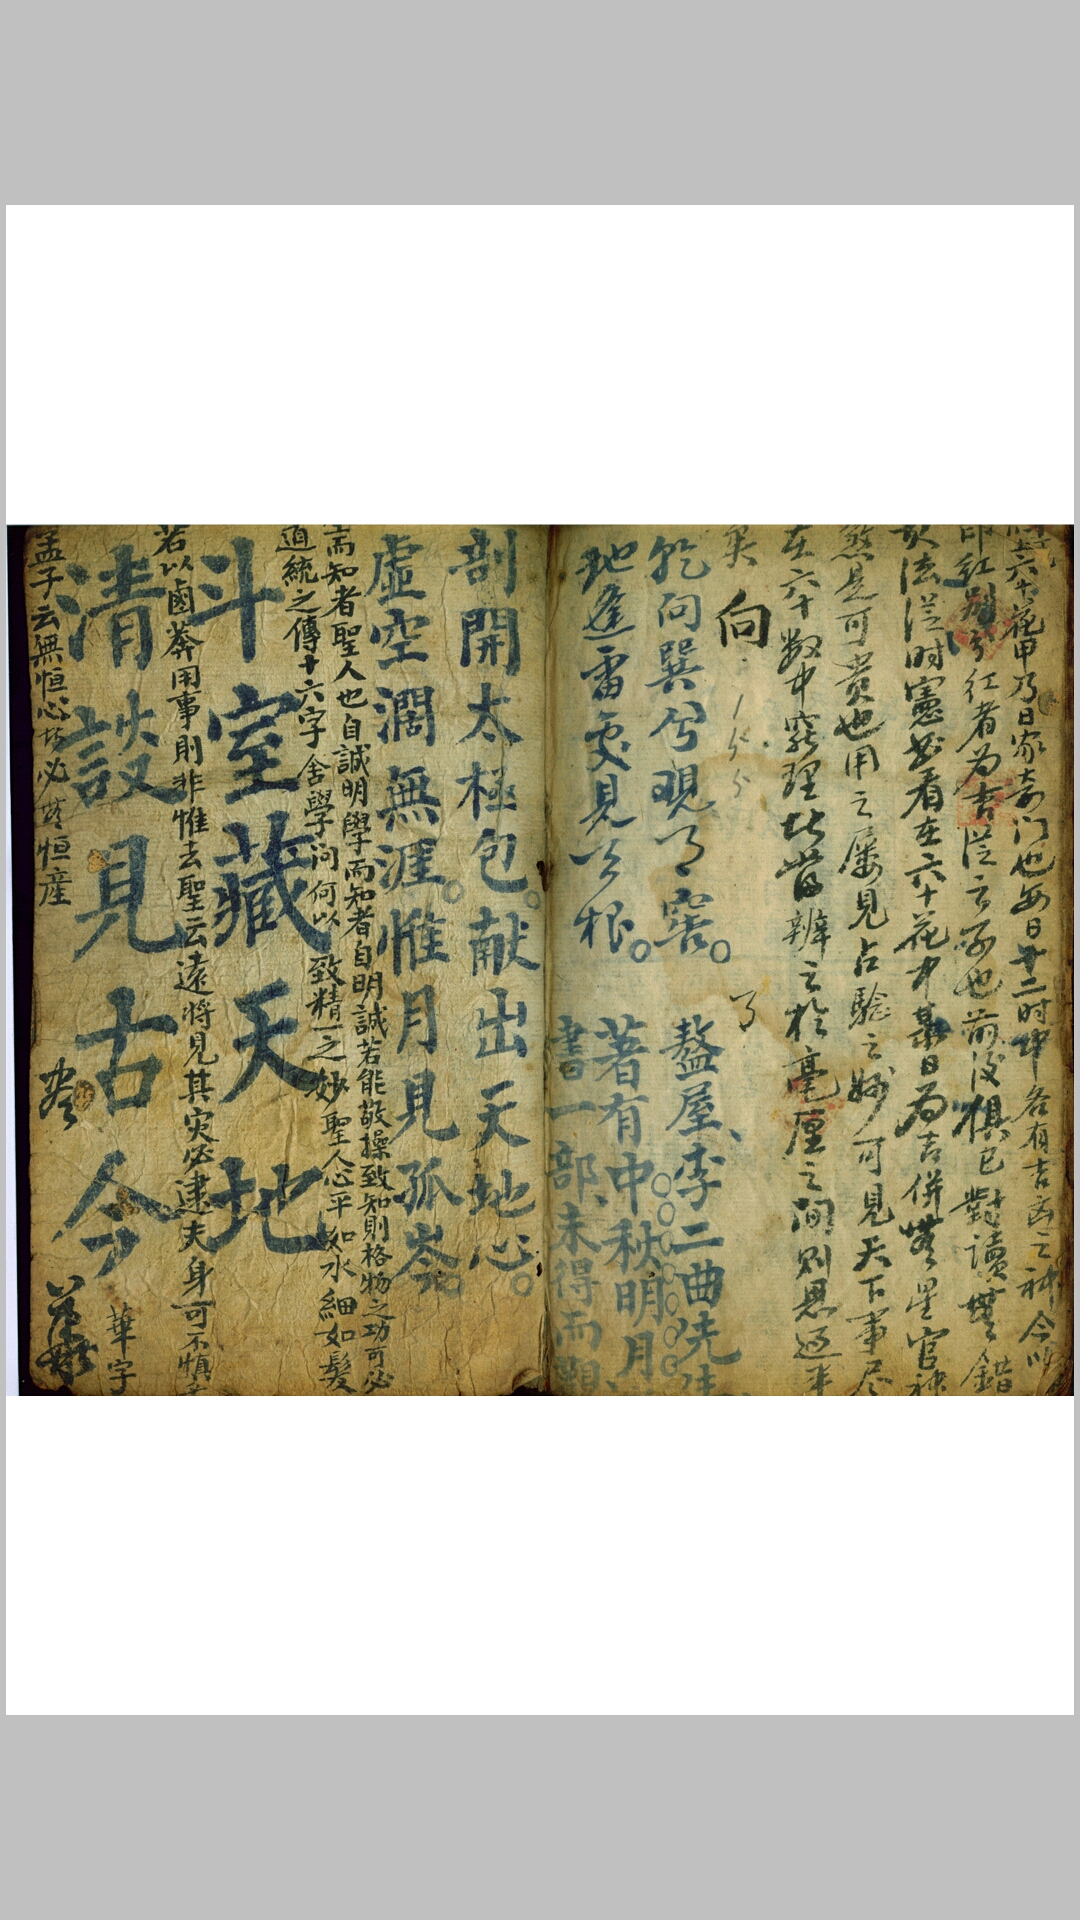 六十花甲乃日家奇门也每日廿二时中各有吉凶之神今以
印红别兮红者为吉从云子也前後俱已對讀無錯
法從时憲书看在六十花中某日为吉併無星官神
煞是可贵也用之屡見占驗之妙可見天下事尽
在六十数中窮理皆辨之於毫厘之間则思过半
矣
向
了
乾问巽兮观月窟。
地逢雷處見天根。
盩屋李二曲先生
著有中秋明月
書一部未得而顯
剖開太極包。獻出天地心。
虛空濶無涯。惟月見孤岑。
而知者聖人也自誠明學而知者自明誠若能敬操致知則格物之功可必
道統之傳十六字舍學问何以致精一之妙聖人心平如水細如髮
斗室藏天地
若以鹵莽用事則非惟去聖云遠將見其灾必逮夫身可不慎
清談見古今
華字
孟子云無恒心者必無恒産